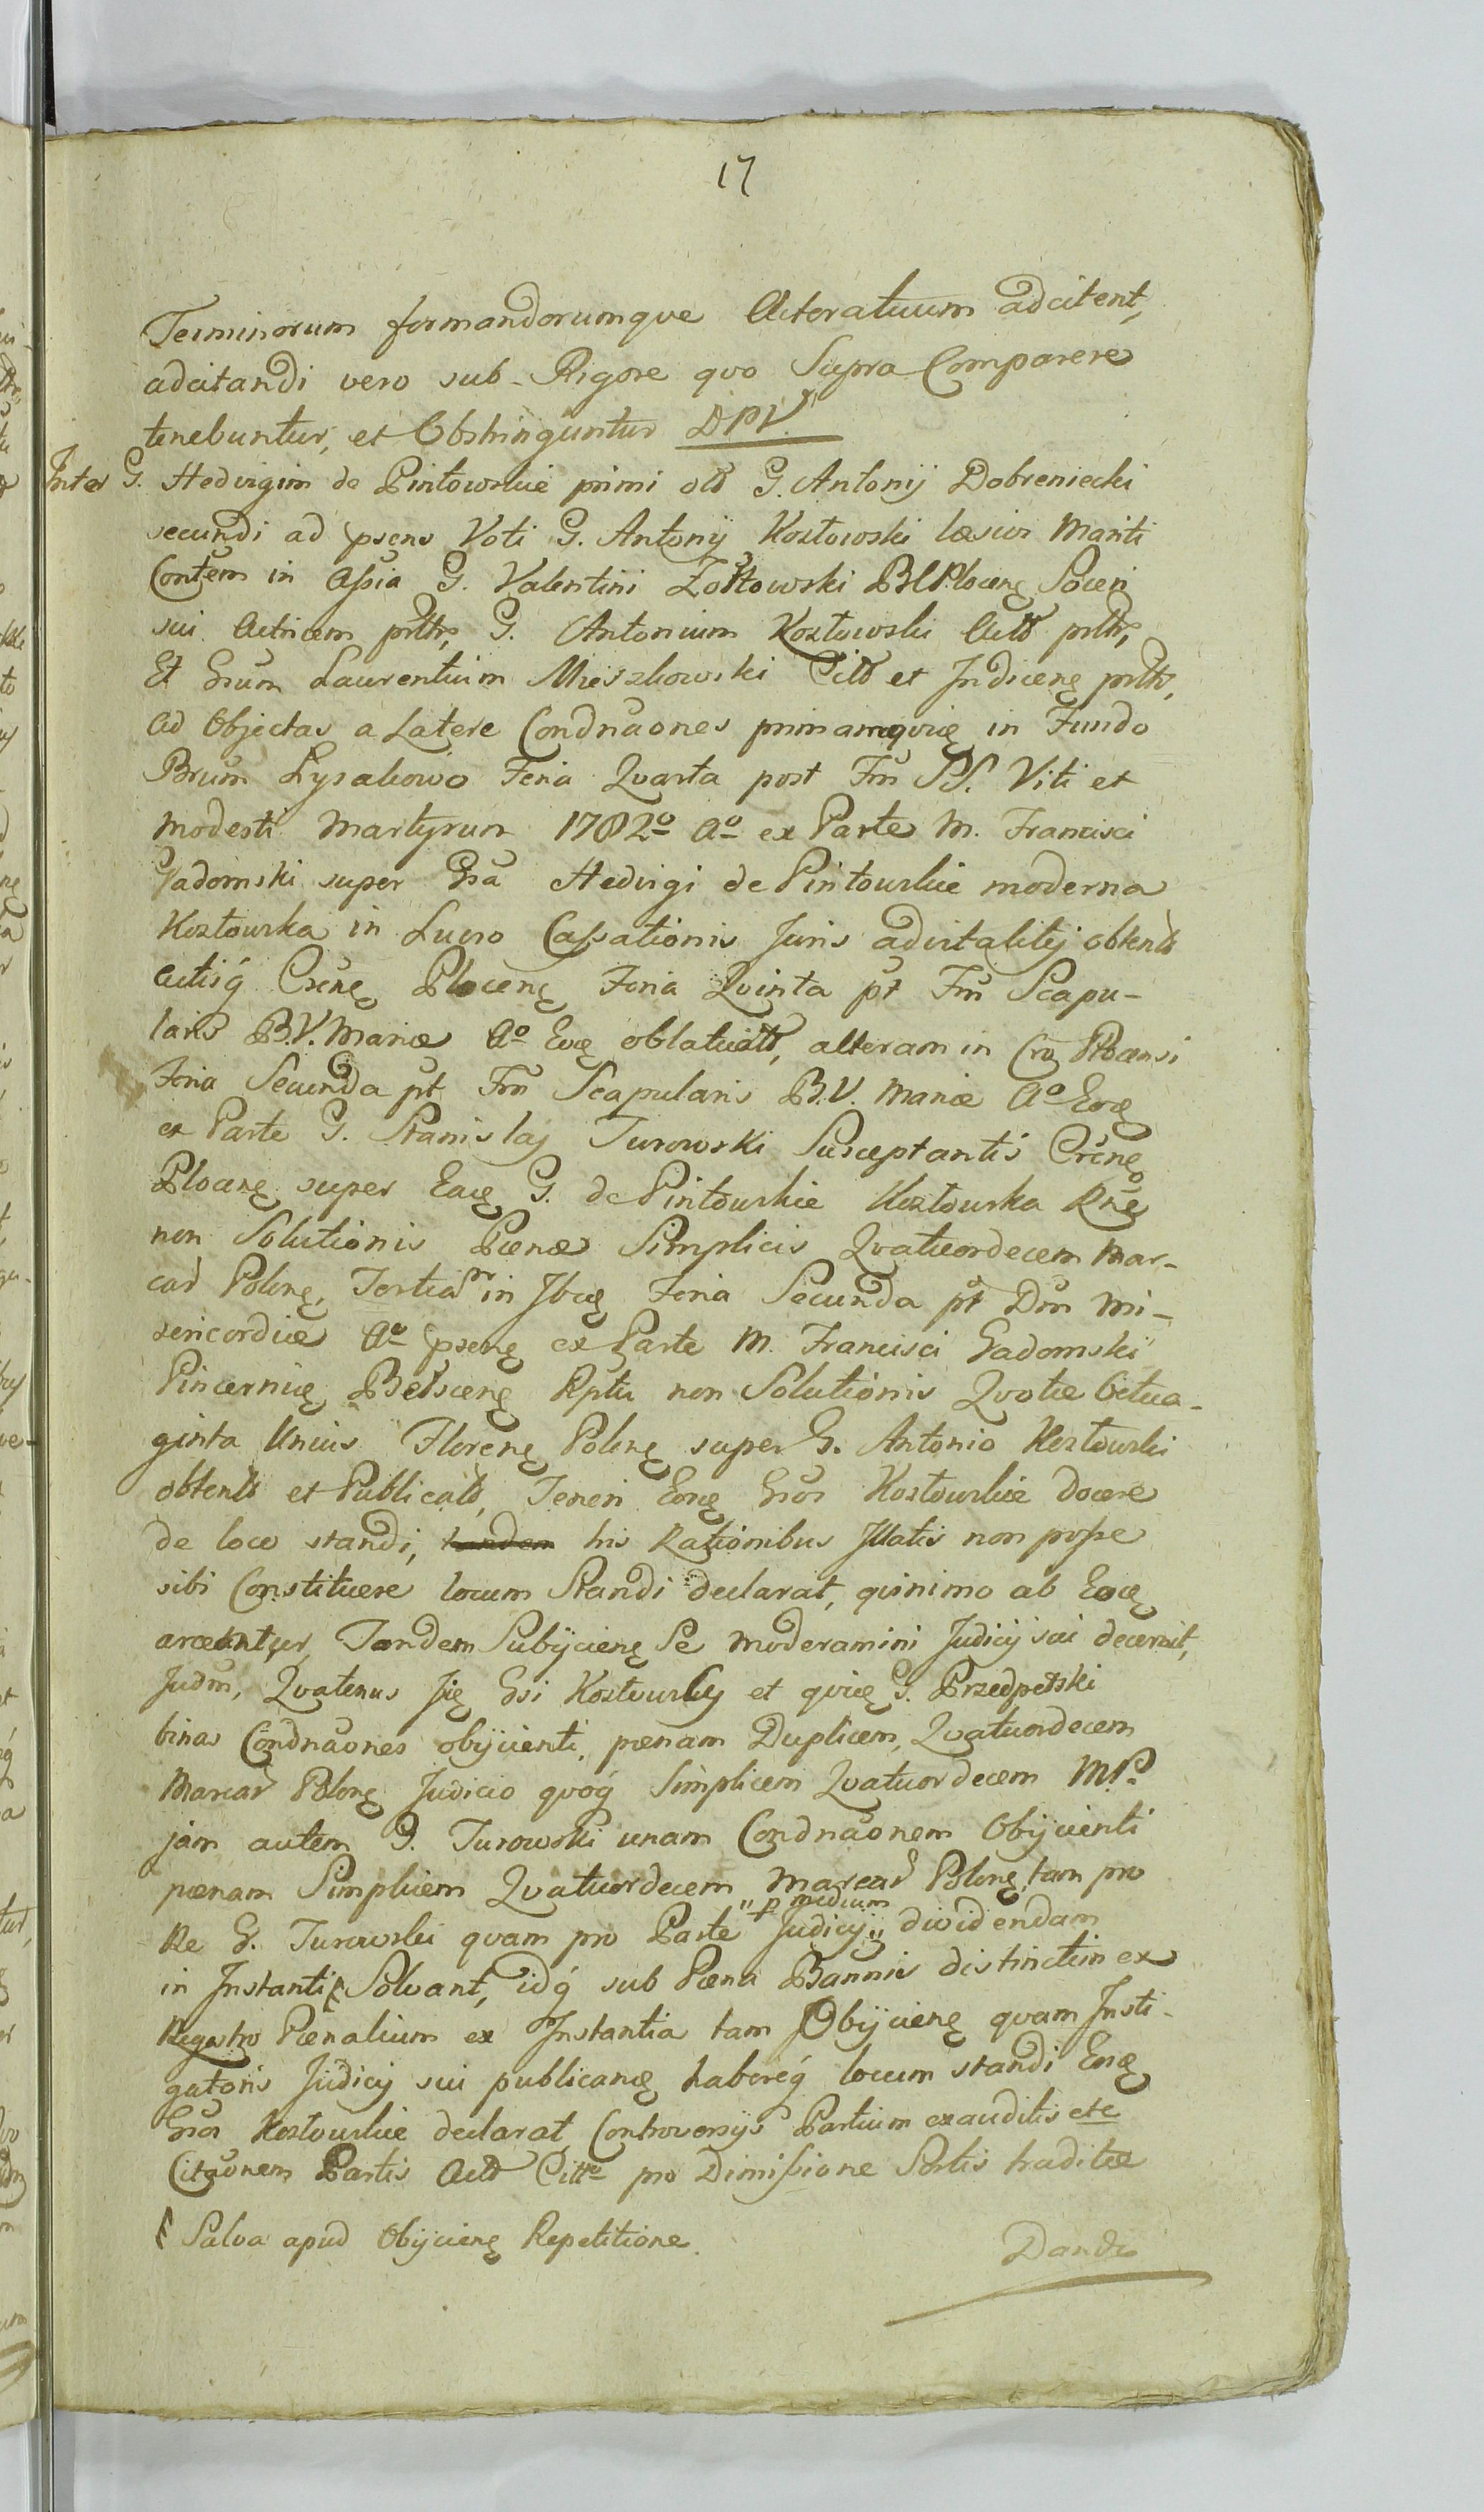 17
Terminorum formandorumque Actoratuum adcitent,
adcitandi vero sub Rigore qvo Supra Comparere
tenebuntur, et Obstringuntur DPV.
Inter G. Hedvigim de Pintowskie primi olo G. Antonij Dobreniecki
secundi ad psens Voti G. Antonij Kozłowski læsior Mariti
Contem in Assia G. Valentini Zołtowski BCPlocenę Soceri
sui Actricem prlth, G. Antonium Kozłowski Acto prlth,
Et Grum Laurentium Mieszkowski Cito et Judicenę prlth,
ad Objectas a Latere Condnaones primamqvię in Fundo
Brum Łysakowo Feria Qvarta post Fm SS. Viti et
Modesti Martyrum 1782o Ao ex Parte M. Francisci
Gadomski super Gsa Hedvigi de Pintowskie moderna
Kozłowska in Lucro Cassationis Juris advitalitij obtento
actisq Crenę Plocenę Feria Qvinta pt Fm Scapu-
laris B.V. Mariæ Ao Eoę oblatuato, alteram in Crę
Feria Secunda pt Fm Scapularis B.V. Mariæ Ao Eoę
ex Parte G. Stanislaj Turowski Susceptantis Crenę
Plocenę super Eaę G. de Pintowskie Kozłowska Rnę
non Solutionis Pœnæ Simplicis Qvatuordecem Mar-
car Polonę, Tertiam in Ibię Feria Secunda pt Dm Mi-
sericordiæ Ao psenę ex Parte M. Francisci Gadomski
Pincernię Belscenę Rptu non Solutionis Qvotæ Octua-
ginta Unius Florenę Polonę super G. Antonio Kozłowski
obtento et Publicato, Teneri Eosę Gsos Kozłowskie docere
de loco standi, tandem his Rationibus Illatis non posse
sibi Constituere locum Standi declarat, qvinimo ab Eoę
arcentur, Tandem Subijcienę Se moderamini Judicij sui decernit,
Judm, Qvatenus Iię Gsi Kozłowscy et qvię G. Przedpełski
binas Condnaones obijcienti, pœnam Duplicem, Qvatuordecem
Marcar Polonę Judicio qvoq Simplicem Qvatuordecem MP.
jam autem G. Turowski unam Condnaonem Obijcienti
pœnam Simplicem Qvatuordecem Marcar Polonę, tam pro
Re G. Turowski qvam pro Parte " p medium Judicij " dividendam
in Instanti Solvant, idq sub Pœna Bannis distinctim ex
Regestro Pœnalium ex Instantia tam Obijcienę qvam Insti-
gatoris Judicij sui publicandę habereq locum standi Eosę
Gsos Kozłowskie declarat, Controversijs Partium exauditis etc
Citaonem Partis Acto Citto pro Dimissione Sortis traditæ
Salva apud Obijcienę Repetitione.
Dandi